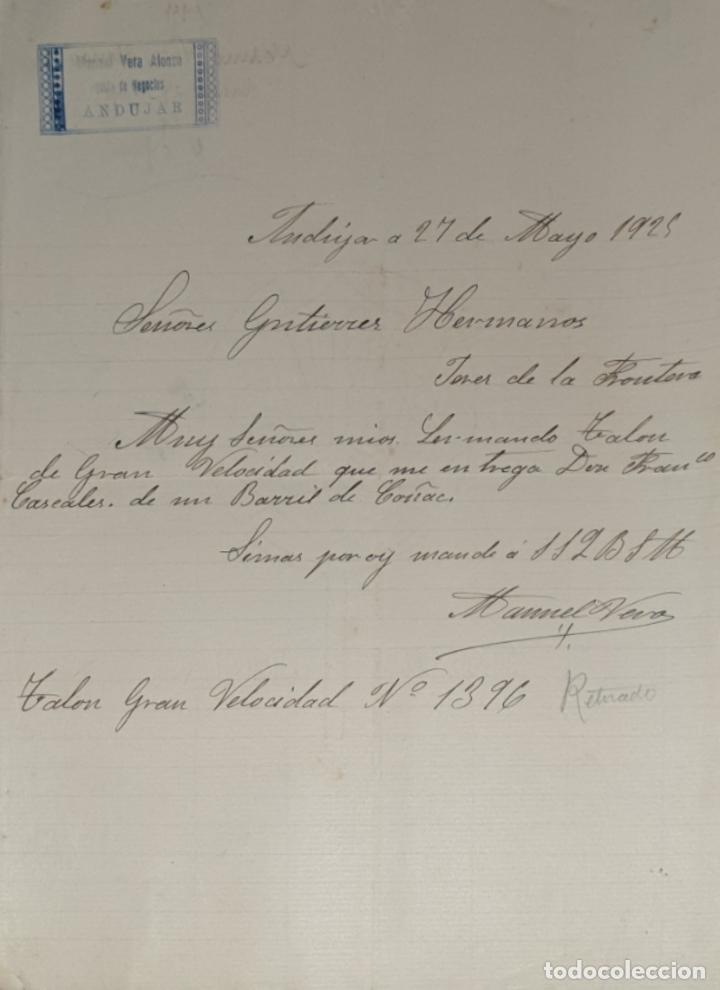 Vera Alonso
de Negocios
ANDUJAR
Andujar a 27 de Mayo 1925
Señores Gutierres Hermanos
Jeres de la Frontera
Muy Señores mios. Les mando Talon
de Gran Velocidad que me entrega Don Fran co
Cascales. de un Barril de Coñac.
Sinmas por oy mande á S S Q B S M
Manuel Vera
Talon Gran Velocidad Nº 1396 Retirado
todocoleccion